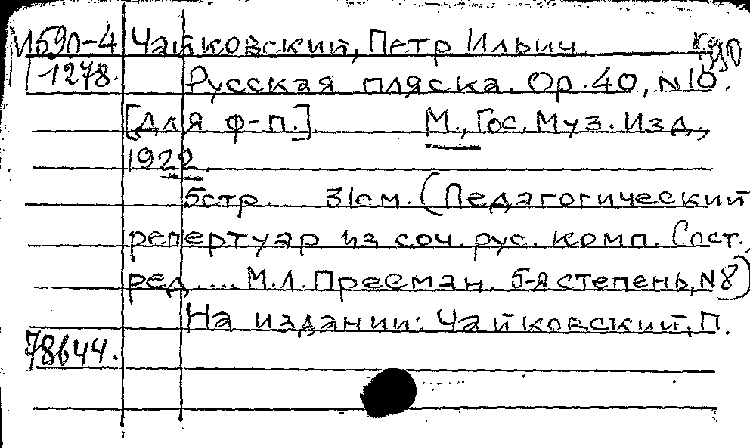 М590-4 Чайковский, Петр Ильич.
1278. Русская пляска. Ор. 40, N 10.
[Для ф-п.] М., Гос. Муз. Изд.,
1922.
5стр. 31см. (Педагогический
репертуар из соч. рус. комп. Сост.,
ред. ... М.Л. Пресман. 5-я степень, N 8)
На издании: Чайковский, П.
78644.